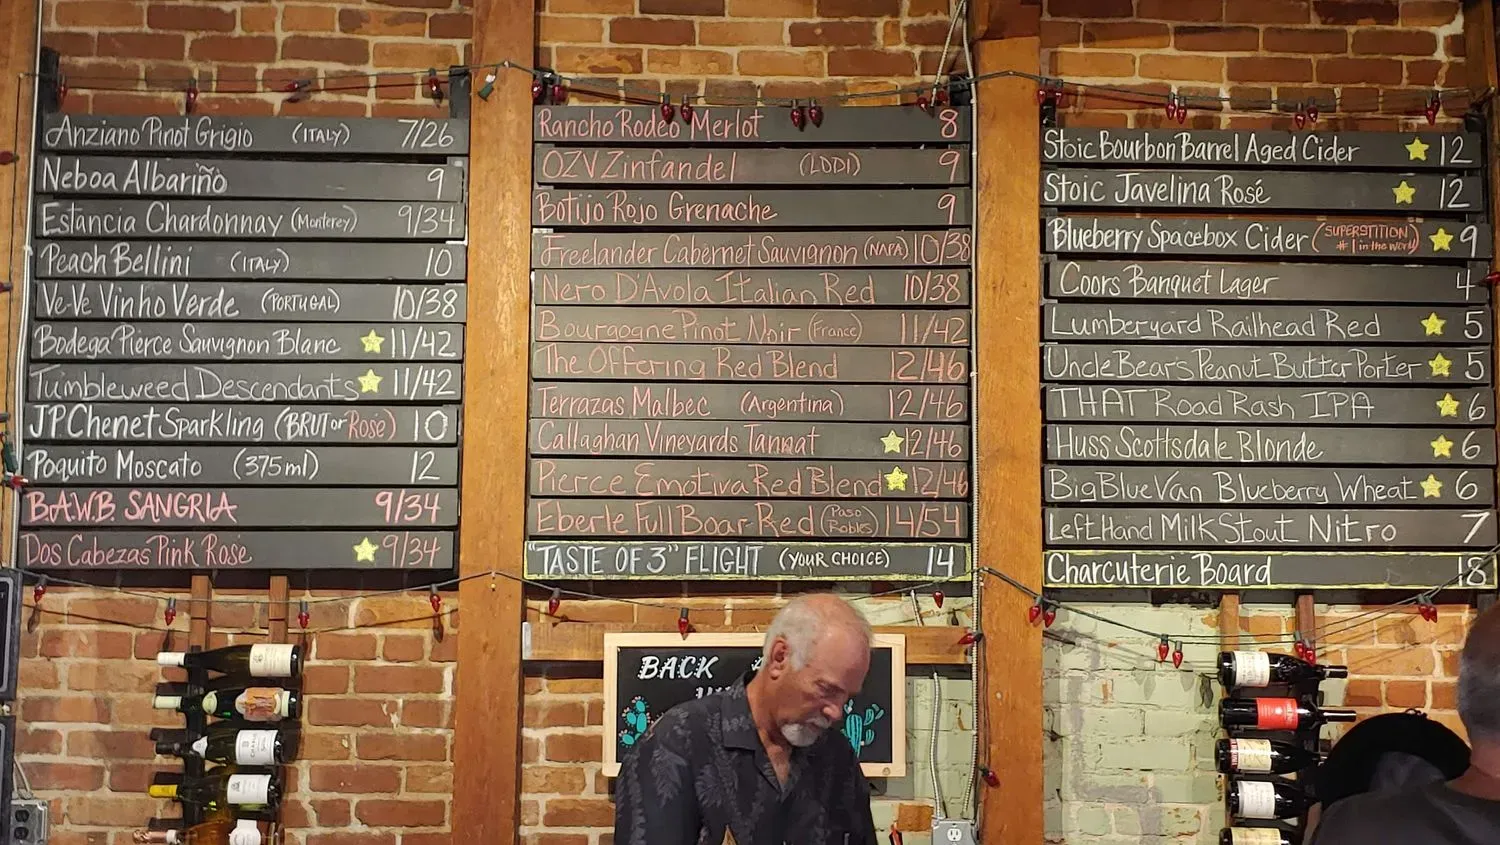 Anziano Pinot Grigio (ITALY) 7/26
Neboa Albariño 9
Estancia Chardonnay (Monterey) 9/34
Peach Bellini (ITALY) 10
Ve-Ve Vinho Verde (PORTUGAL) 10/38
Bodega Pierce Sauvignon Blanc 11/42
Tumbleweed Descendants 11/42
JP Chenet Sparkling (BRUT or Rosé) 10
Poquito Moscato (375ml) 12
B.A.W.B. SANGRIA 9/34
Dos Cabezas Pink Rosé 9/34
Rancho Rodeo Merlot 8
OZV Zinfandel (LODI) 9
Botijo Rojo Grenache 9
Freelander Cabernet Sauvignon (NAPA) 10/38
Nero D'Avola Italian Red 10/38
Bourgogne Pinot Noir (France) 11/42
The Offering Red Blend 12/46
Terrazas Malbec (Argentina) 12/46
Callaghan Vineyards Tannat 12/46
Pierce Emotiva Red Blend 12/46
Eberle Full Boar Red (Paso Robles) 14/54
"TASTE OF 3" FLIGHT (YOUR CHOICE) 14
Stoic Bourbon Barrel Aged Cider 12
Stoic Javelina Rosé 12
Blueberry Spacebox Cider (SUPERSTITION #1 in the world) 9
Coors Banquet Lager 4
Lumberyard Railhead Red 5
Uncle Bears Peanut Butter Porter 5
THAT Road Rash IPA 6
Huss Scottsdale Blonde 6
Big Blue Van Blueberry Wheat 6
Left Hand Milk Stout Nitro 7
Charcuterie Board 18
BACK